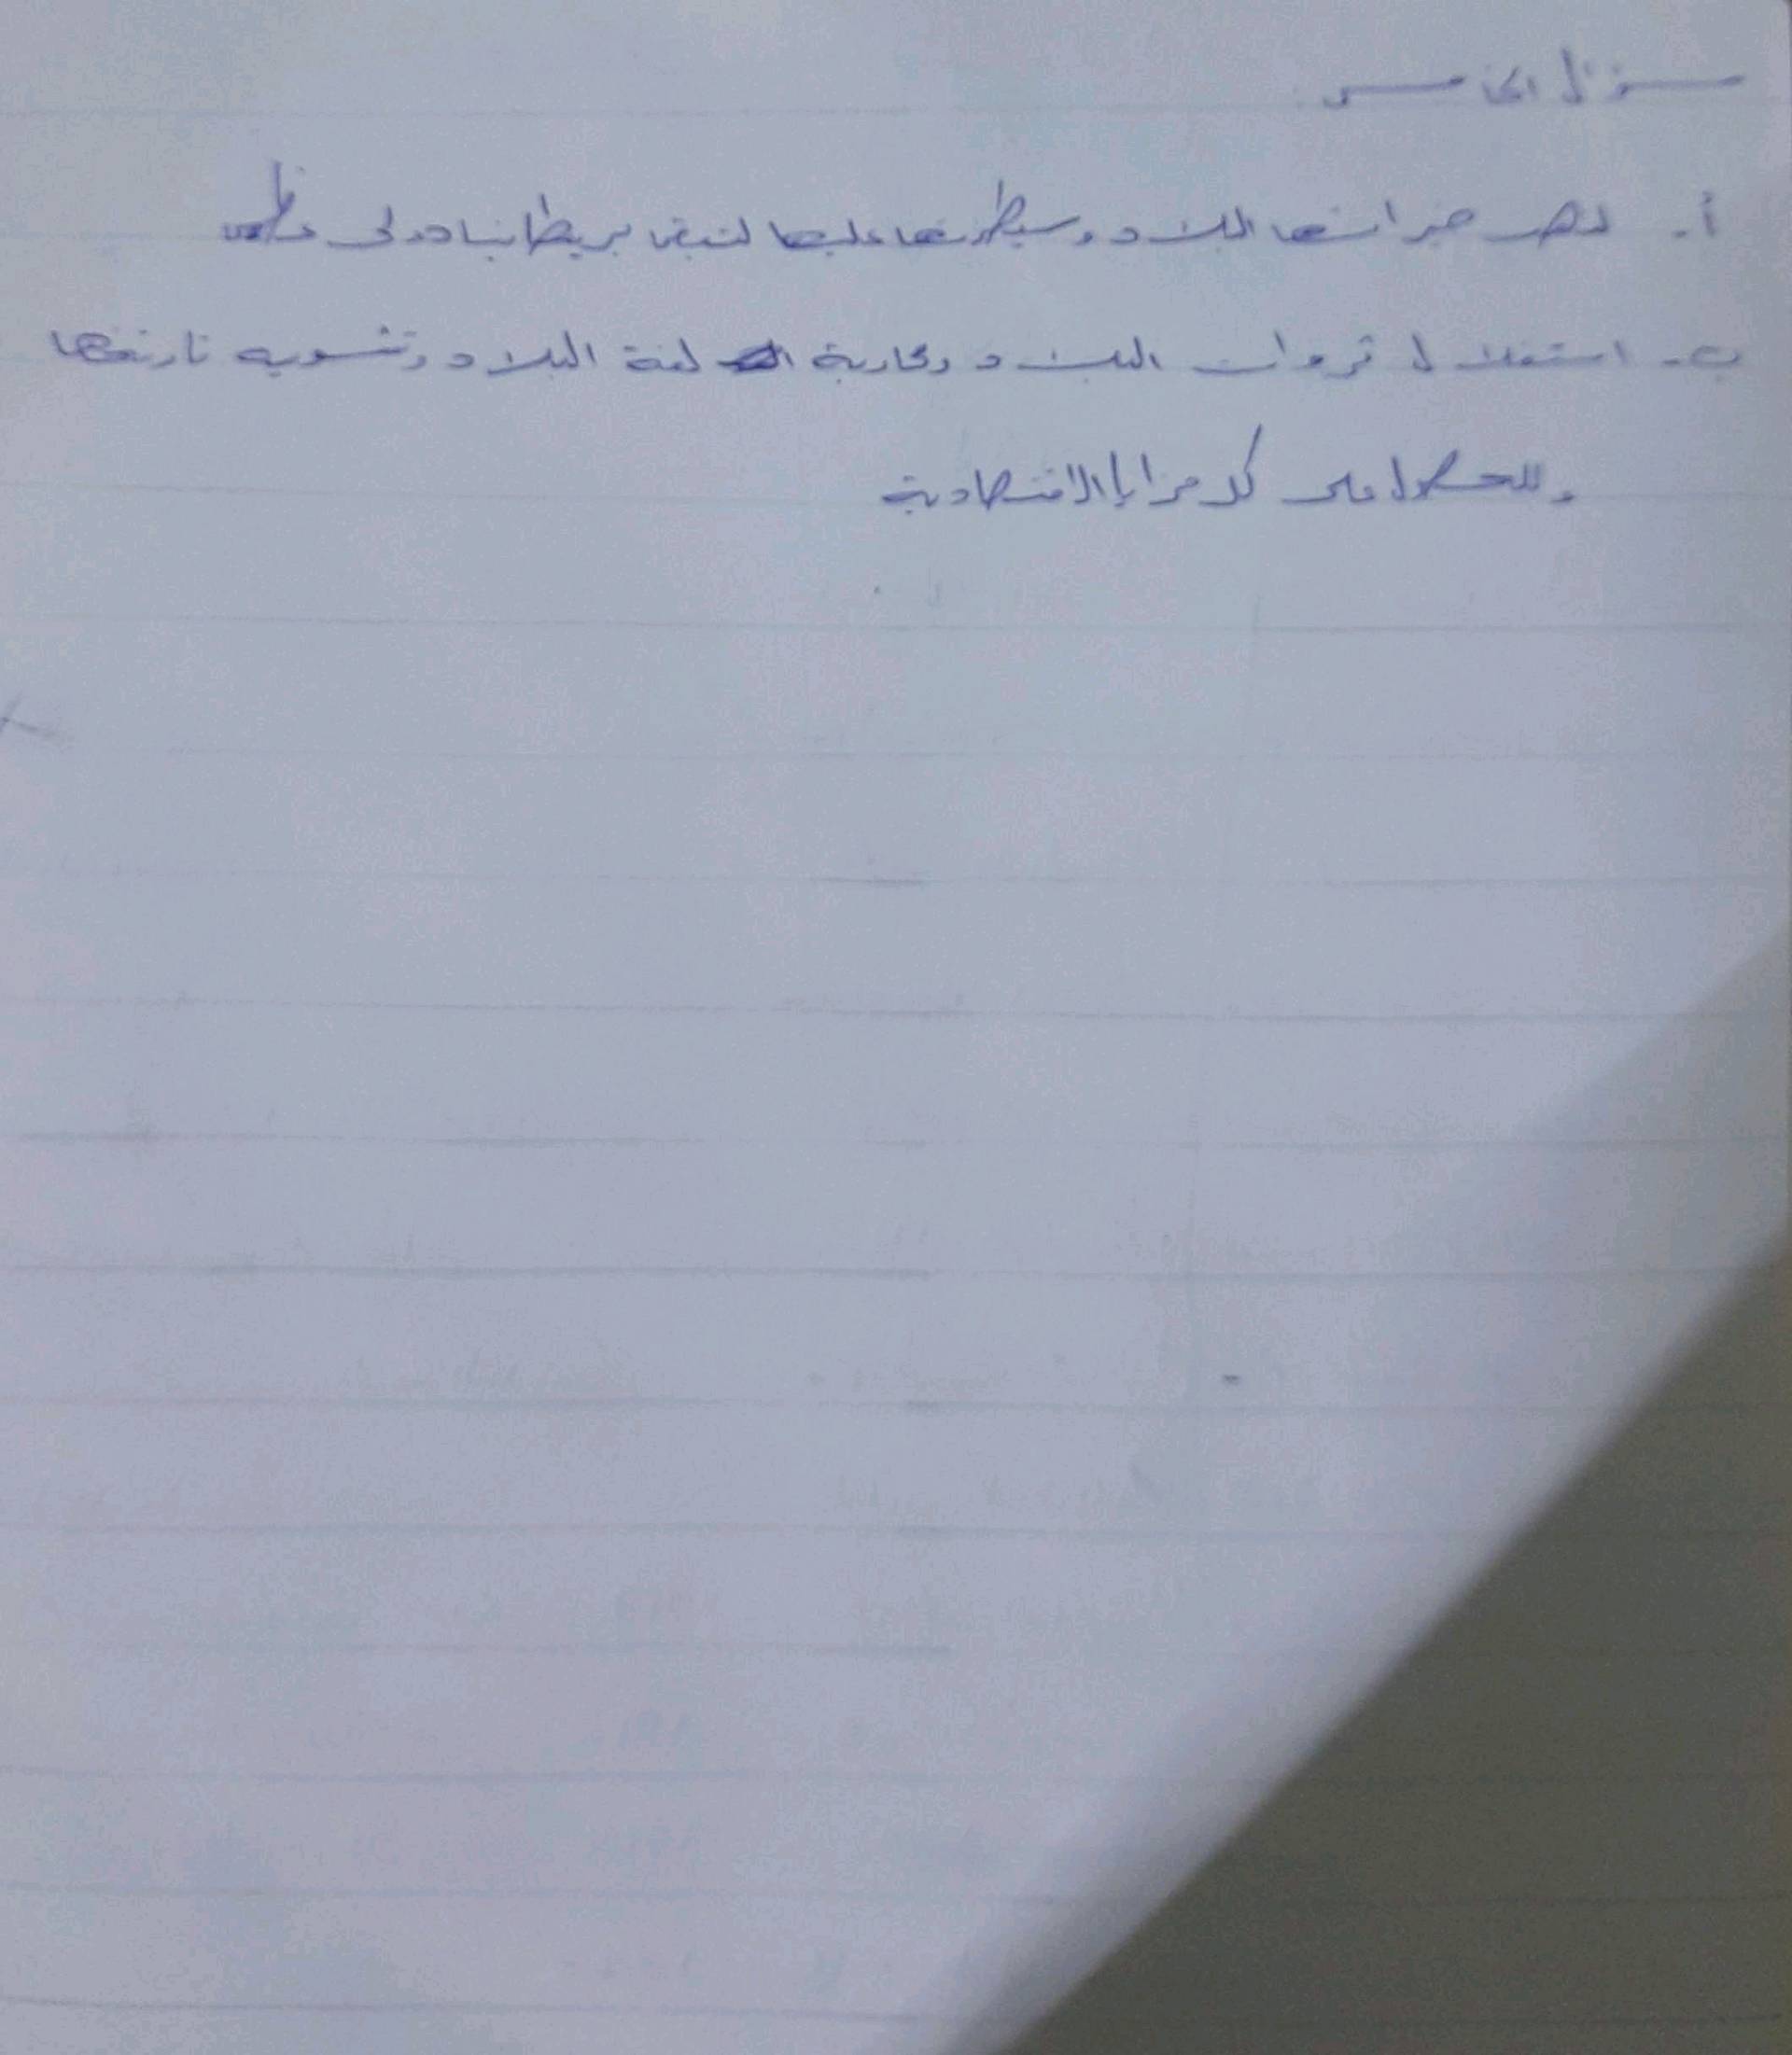 سؤال الخامس
أ. لهم خيراتها البلاد وسيطرتها عليها لتبقى بريطانيا دولى
ب- استغلال ثروات البلاد ومحاربة لغة البلاد وتشويه تاريخها
وللحصول على كل مزايا الاقتصادية